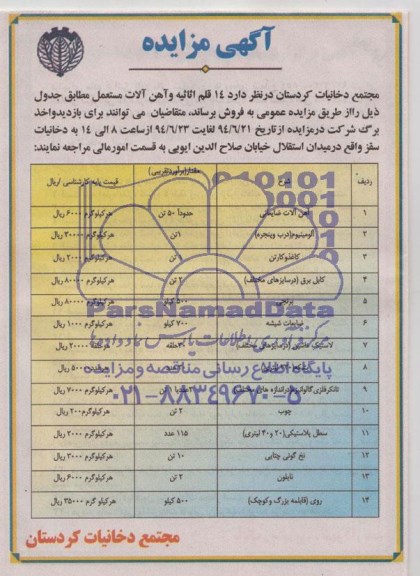 آگهی مزایده
مجتمع دخانیات کردستان درنظر دارد ۱۴ قلم اثاثیه وآهن آلات مستعمل مطابق جدول
ذیل رااز طریق مزایده عمومی به فروش برساند، متقاضیان می توانند برای بازدیدواخذ
برگ شرکت درمزایده ازتاریخ ۹۴/۶/۲۱ لغایت ۹۴/۶/۲۳ ازساعت ۸ الی ۱۴ به دخانیات
سقز واقع درمیدان استقلال خیابان صلاح الدین ایوبی به قسمت امورمالی مراجعه نمایند:
ردیف نوع مقدار(برآورد تقریبی) قیمت پایه کارشناسی /ریال
۱ آهن آلات ضایعاتی حدوداً ۵۰ تن هرکیلوگرم ۶۰۰۰ ریال
۲ آلومینیوم(درب وپنجره) ۱تن هرکیلوگرم ۳۰۰۰۰ ریال
۳ کاغذوکارتن تن هرکیلوگرم ۲۰۰۰ ریال
۴ کابل برق (درسایزهای مختلف) ۲ تن هرکیلوگرم ۸۰۰۰۰ ریال
۵ برنجی ۵۰۰ کیلو هرکیلوگرم ۸۰۰۰۰ ریال
۶ ضایعات شیشه ۷۰۰ کیلو هرکیلوگرم ۱۰۰۰ ریال
۷ لاستیک ماشین (درسایزهای مختلف) حلقه ۲۰۰۰۰ ریال
۸ ۵۰۰ ریال
۹ تانکرفلزی گالوانیزه(دراندازه های مختلف) تن هرکیلوگرم ۷۰۰۰ ریال
۱۰ چوب ۲ تن هرکیلوگرم ۲۰۰۰ ریال
۱۱ سطل پلاستیکی(۲۰ و۴۰ لیتری) ۱۱۵ عدد هرکیلوگرم ۲۰۰۰ ریال
۱۲ نخ گونی چتایی ۱۰ تن هرکیلوگرم ۳۰۰۰ ریال
۱۳ نایلون ۲ تن هرکیلوگرم ۶۰۰۰ ریال
۱۴ روی (قابلمه بزرگ وکوچک) ۵۰۰ کیلو هرکیلوگرم ۳۵۰۰۰ ریال
ParsNamadData
پایگاه اطلاع رسانی مناقصه ومزایده
۰۲۱-۸۸۳۴۹۶۷۰-۵
مجتمع دخانیات کردستان